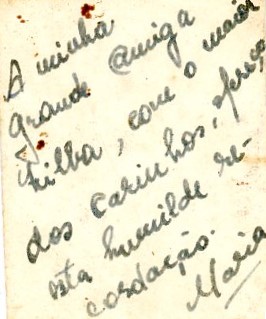 A minha
grande amiga
Hilba, com o maior
dos carinhos, ofereço
esta humilde re-
cordação.
Maria